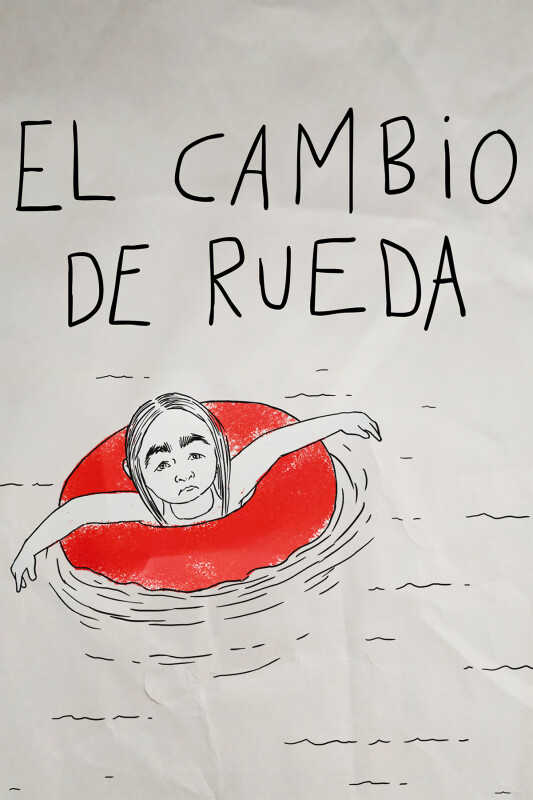 EL CAMBiO
DE RUEDA